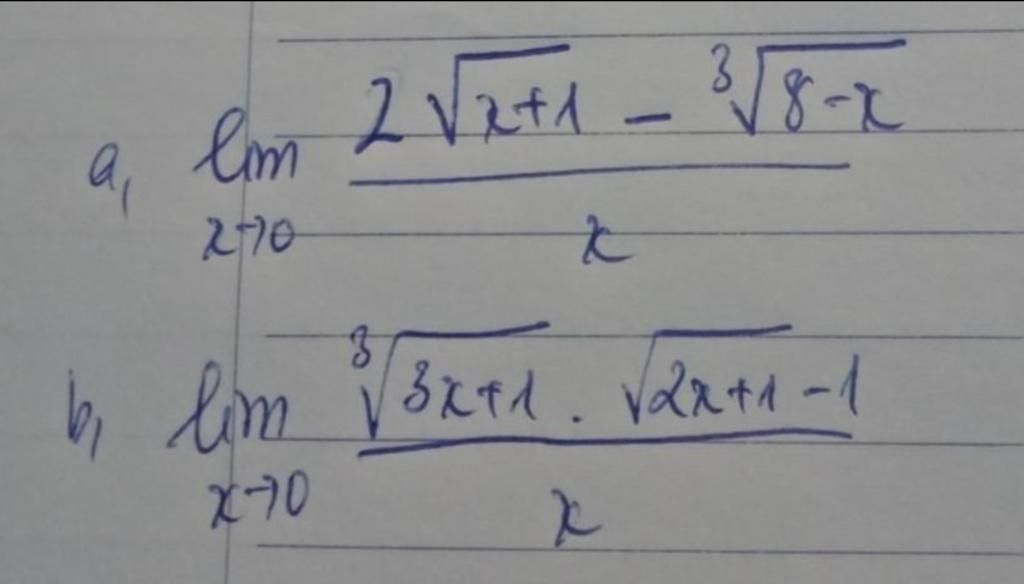 a, lim x→0 (2√(x+1) - ∛(8-x)) / x
b, lim x→0 (∛(3x+1) . √(2x+1) - 1) / x